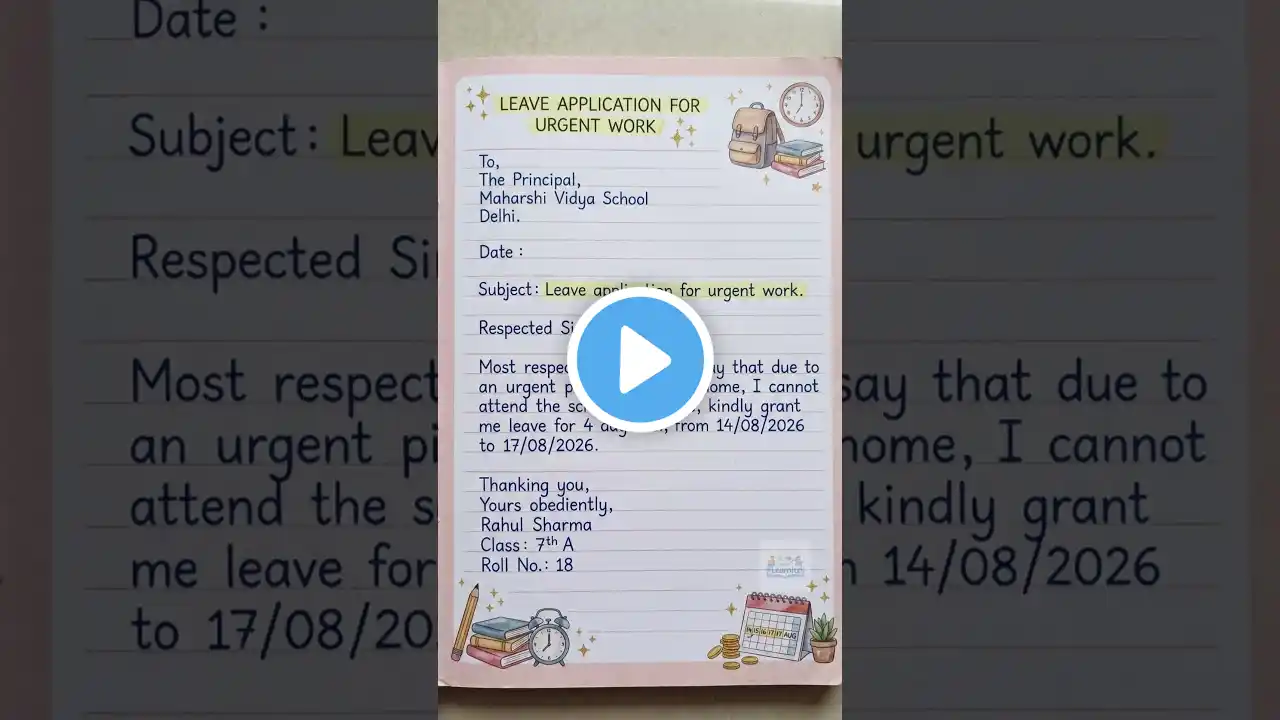 LEAVE APPLICATION FOR
URGENT WORK
To,
The Principal,
Maharshi Vidya School
Delhi.
Date :
Subject: Leave application for urgent work.
Respected Si
Most respec say that due to
an urgent pi home, I cannot
attend the sc kindly grant
me leave for 4 from 14/08/2026
to 17/08/2026.
Thanking you,
Yours obediently,
Rahul Sharma
Class: 7th A
Roll No.: 18
Date :
Subject: Leav urgent work.
Respected Si
Most respect say that due to
an urgent pi home, I cannot
attend the s kindly grant
me leave for 14/08/2026
to 17/08/20